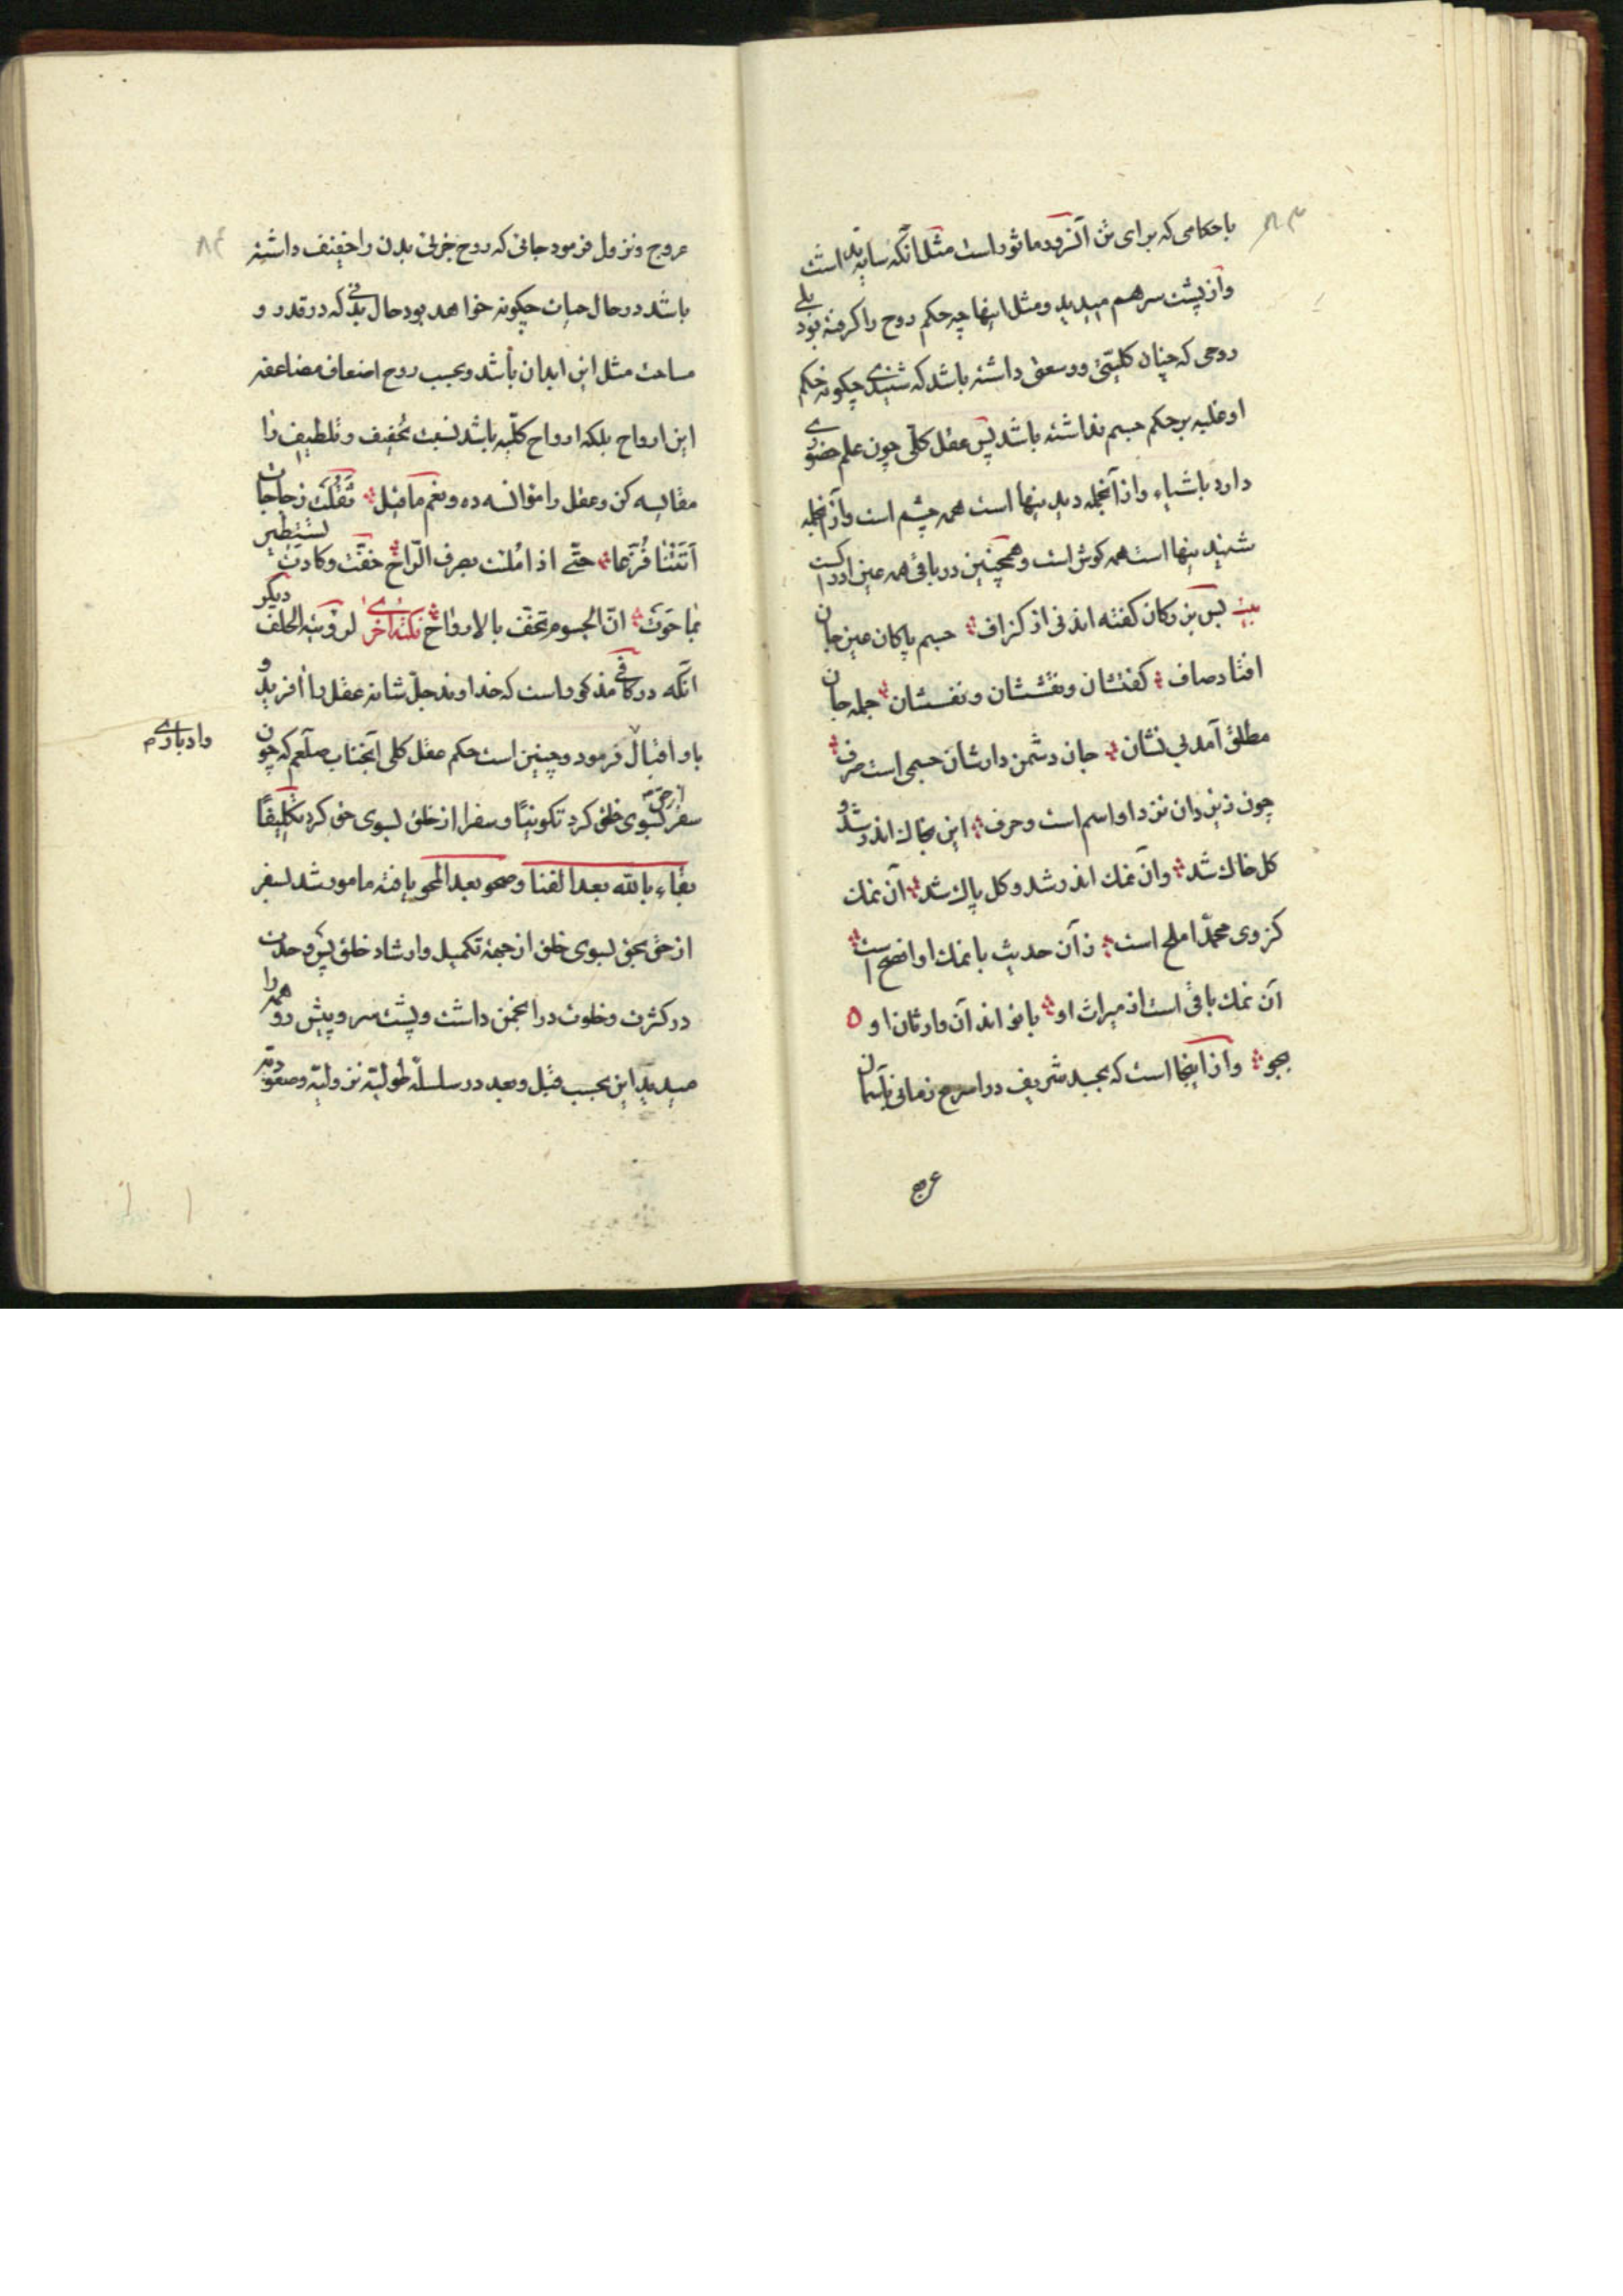 ۸۳
باحکامی که برای تن آنسرود ماثور است مثل آنکه سایه نداشت
و از پشت سر هم میدید و مثل اینها چه حکم روح را گرفته بود بلی
روحی که چنان کلیتی و وسعتی داشته باشد که شنیدی چگونه حکم
او غلبه بر حکم جسم نداشته باشد پس عقل کلی چون علم حضوری
دارد باشیاء و از آنجمله دیدنیها است همه چشم است و از آنجمله
شنیدنیها است همه گوش است و همچنین در باقی همه عین ادراکست
بیت پس بزرگان گفته اند نی از گزاف جسم پاکان عین جان
افتاد صاف گفتشان و نقششان و نفسشان جمله جان
مطلق آمد بی نشان جان دشمن دارشان جسمی است صرف
چون زنرد ان نزد او اسم است و حرف این بخاک اندر شد و
کل خاک شد وان نمک اندر شد و کل پاک شد آن نمک
کز وی محمد املح است زان حدیث با نمک او افصح است
آن نمک باقی است از میراث او با تو اند آن وارثان او
بجو و از اینجا است که بجسد شریف در اسرع زمانی بآسمان
عرج
۸۴
عروج و نزول فرمود جائی که روح جزئی بدن را خفیف داشته
باشد در حال حیات چگونه خواهد بود حال بدنی که در قدر و
مساحت مثل این ابدان باشد و بحسب روح اضعاف مضاعفه
این ارواح بلکه ارواح کلیه باشد نسبت تخفیف و تلطیف را
مقایسه کن و عقل را موانسه ده و نعم ما قیل ثَقُلَت زجاجات
اَتَتْنا فُرَّغا حتّی اذا مُلئت بصرف الرّاح خفّت و کادت تستطیر
بما حَوَت انّ الجسوم تخفّ بالارواح نکتهٔ اُخری لرؤیته الخلف دیگر
آنکه در کافی مذکور است که خداوند جلّ شانه عقل را آفرید و
باو اقبال فرمود و چنین است حکم عقل کلی آنجناب صلعم که چون
وادباری م
سفر از حق بسوی خلق کرد تکوینًا و سفر از خلق بسوی حق کرد تکلیفًا
بقاء بالله بعد الفنا و صحو بعد المحو یافته مامور شد بسفر
از حق بحق بسوی خلق از جهة تکمیل و ارشاد خلق پس وحدت
در کثرت و خلوت در انجمن داشت و پشت سر و پیش رو همه را
میدید این بحسب قبل و بعد در سلسله طولیّه نزولیّه و صعودیّه